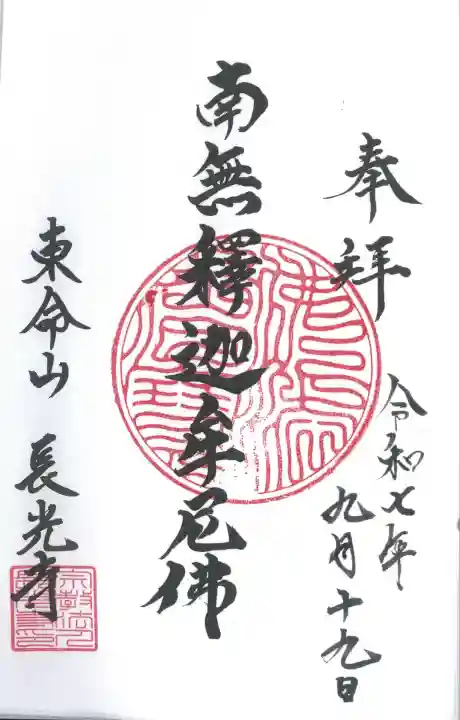 奉拝
令和七年
九月十九日
南無釋迦牟尼佛
東命山 長光寺